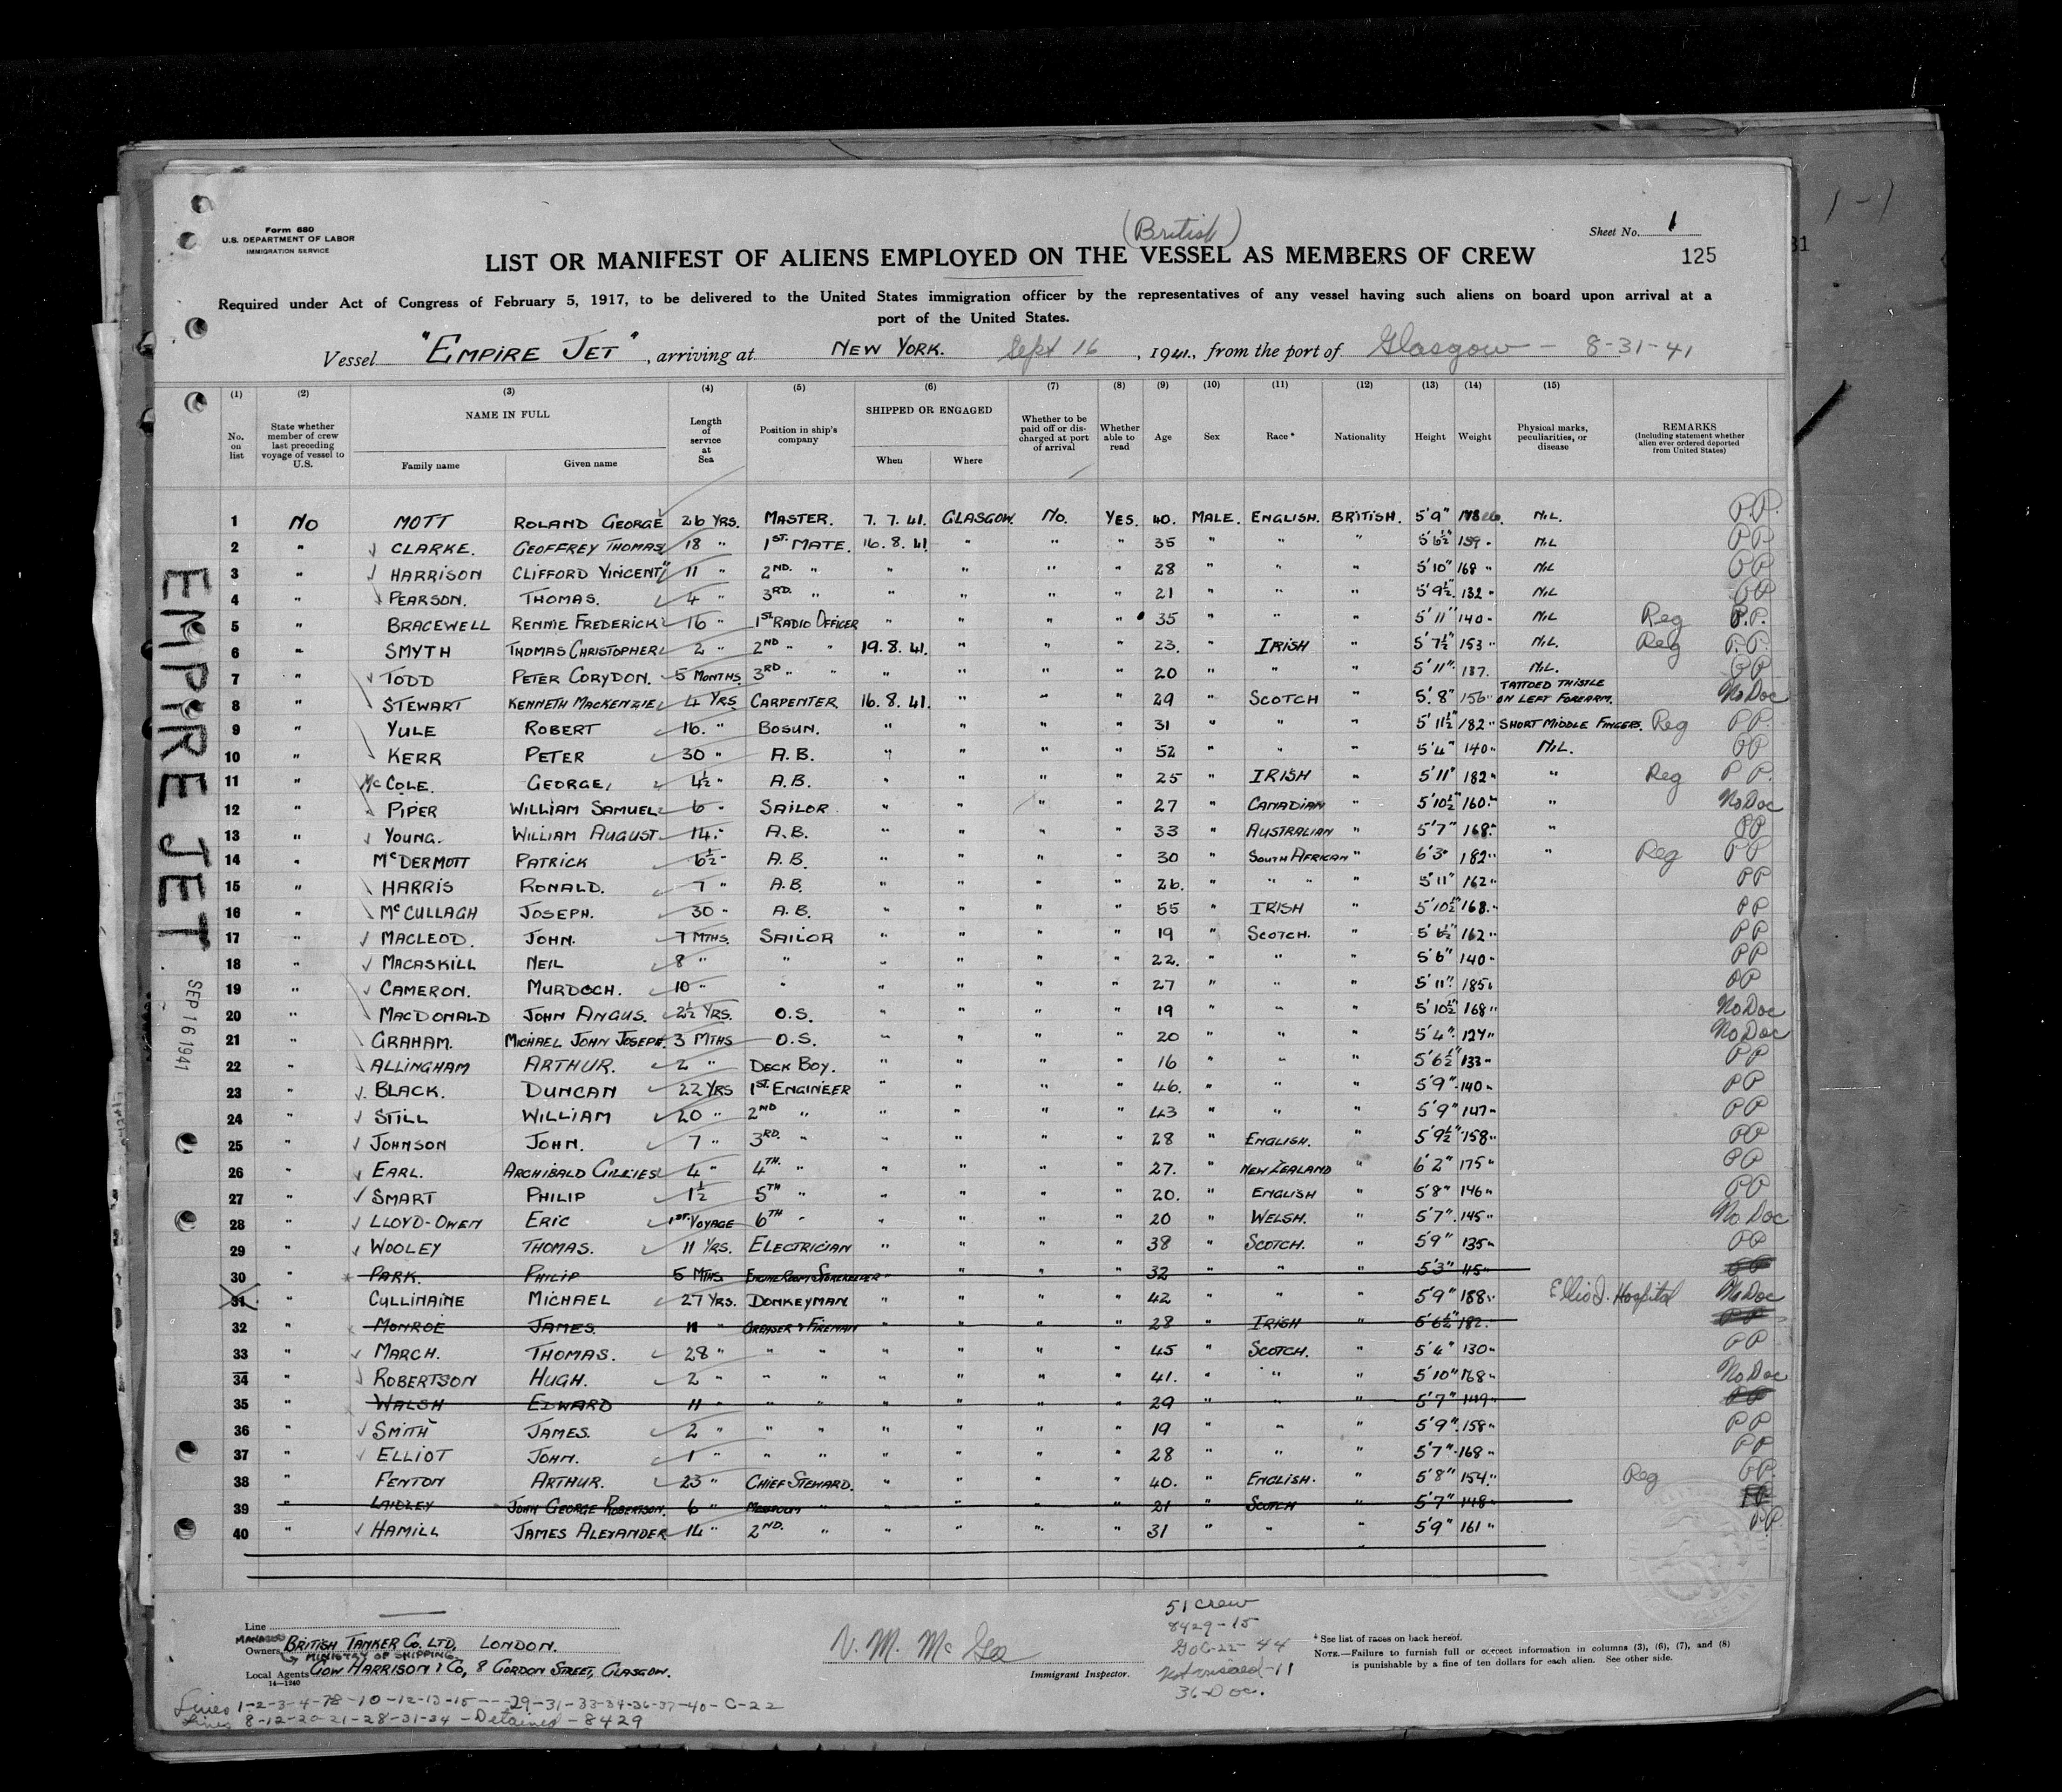 1-1
31
Form 680
U.S. DEPARTMENT OF LABOR
IMMIGRATION SERVICE
(British)
Sheet No. 1
LIST OR MANIFEST OF ALIENS EMPLOYED ON THE VESSEL AS MEMBERS OF CREW
125
Required under Act of Congress of February 5, 1917, to be delivered to the United States immigration officer by the representatives of any vessel having such aliens on board upon arrival at a
port of the United States.
Vessel "EMPIRE JET", arriving at NEW YORK. Sept 16, 1941., from the port of Glasgow - 8-31-41
(1) (2) (3) (4) (5) (6) (7) (8) (9) (10) (11) (12) (13) (14) (15)
No. on list State whether member of crew last preceding voyage of vessel to U.S. NAME IN FULL Family name Given name Length of service at Sea Position in ship's company SHIPPED OR ENGAGED When Where Whether to be paid off or discharged at port of arrival Whether able to read Age Sex Race* Nationality Height Weight Physical marks, peculiarities, or disease REMARKS (Including statement whether alien ever ordered deported from United States)
1 NO MOTT ROLAND GEORGE 26 YRS. MASTER. 7.7.41. GLASGOW. NO. YES. 40. MALE. ENGLISH. BRITISH. 5'9" NIL. PP.
2 " CLARKE. GEOFFREY THOMAS 18 " 1ST. MATE. 16.8.41. " " " 35 " " " 5'6½" 159 " NIL PP
3 " HARRISON CLIFFORD VINCENT 11 " 2ND. " " " " " 28 " " " 5'10" 168 " NIL PP
4 " PEARSON. THOMAS. 4 " 3RD. " " " " " 21 " " " 5'9½" 132 " NIL PP
5 " BRACEWELL RENNIE FREDERICK 16 " 1ST RADIO OFFICER " " " " 35 " " " 5'11" 140 " NIL Reg P.P.
6 " SMYTH THOMAS CHRISTOPHER 2 " 2ND " " 19.8.41. " " " 23. " IRISH " 5'7½" 153 " NIL. Reg P.P.
7 " TODD PETER CORYDON. 5 MONTHS. 3RD " " " " " " 20 " " " 5'11" 137. NIL. PP
8 " STEWART KENNETH MACKENZIE 4 YRS CARPENTER 16.8.41. " " " 29 " SCOTCH " 5'8" 156 " TATTOED THISTLE ON LEFT FOREARM. No Doc
9 " YULE ROBERT 16. " BOSUN. " " " " 31 " " " 5'11½" 182 " SHORT MIDDLE FINGERS. Reg PP
10 " KERR PETER 30 " A.B. " " " " 52 " " " 5'4" 140 " NIL. PP
11 " McCOLE. GEORGE, 4½ " A.B. " " " " 25 " IRISH " 5'11" 182 " " Reg PP.
12 " PIPER WILLIAM SAMUEL 6 " SAILOR " " " " 27 " CANADIAN " 5'10½" 160 " " No Doc
13 " YOUNG. WILLIAM AUGUST 14. " A.B. " " " " 33 " AUSTRALIAN " 5'7" 168 " " PP
14 " McDERMOTT PATRICK 6½ " A.B. " " " " 30 " SOUTH AFRICAN " 6'3" 182 " " Reg PP
15 " HARRIS RONALD. 7 " A.B. " " " " 26. " " " " 5'11" 162 " PP
16 " McCULLAGH JOSEPH. 30 " A.B. " " " " 55 " IRISH " 5'10½" 168 " PP
17 " MACLEOD. JOHN. 7 MTHS. SAILOR " " " " 19 " SCOTCH. " 5'6½" 162 " PP
18 " MACASKILL NEIL 8 " " " " " " 22. " " " 5'6" 140 " PP
19 " CAMERON. MURDOCH. 10 " " " " " " 27 " " " 5'11" 185 " PP
20 " MACDONALD JOHN ANGUS. 2½ YRS. O.S. " " " " 19 " " " 5'10½" 168 " No Doc
21 " GRAHAM. MICHAEL JOHN JOSEPH. 3 MTHS O.S. " " " " 20 " " " 5'4" 127 " No Doc
22 " ALLINGHAM ARTHUR. 2 " DECK BOY. " " " " 16 " " " 5'6½" 133 " PP
23 " BLACK. DUNCAN 22 YRS 1ST. ENGINEER " " " " 46. " " " 5'9" 140 " PP
24 " STILL WILLIAM 20 " 2ND " " " " " 43 " " " 5'9" 147 " PP
25 " JOHNSON JOHN. 7 " 3RD. " " " " " 28 " ENGLISH. " 5'9½" 158 " PP
26 " EARL. ARCHIBALD GILLIES 4 " 4TH. " " " " " 27. " NEW ZEALAND " 6'2" 175 " PP
27 " SMART PHILIP 1½ 5TH " " " " " 20. " ENGLISH " 5'8" 146 " PP
28 " LLOYD-OWEN ERIC 1ST. VOYAGE 6TH " " " " " 20 " WELSH. " 5'7" 145 " No Doc
29 " WOOLEY THOMAS. 11 YRS. ELECTRICIAN " " " " 38 " SCOTCH. " 5'9" 135 " PP
30 " PARK. PHILIP 5 MTHS. ENGINE ROOM STOREKEEPER " " " " 32 " " " 5'3" 115 " PP
31 " CULLINAINE MICHAEL 27 YRS. DONKEYMAN " " " " 42 " " " 5'9" 188 " Ellis I. Hospital No Doc
32 " MONROE JAMES. 11 " GREASER & FIREMAN " " " " 28 " IRISH " 5'6½" 182. PP
33 " MARCH. THOMAS. 28 " " " " " " " 45 " SCOTCH. " 5'4" 130 " PP
34 " ROBERTSON HUGH. 2 " " " " " " " 41. " " " 5'10" 168 " No Doc
35 " WALSH EDWARD 11 " " " " " " " 29 " " " 5'7" 149 " PP
36 " SMITH JAMES. 2 " " " " " " " 19 " " " 5'9" 158 " PP
37 " ELLIOT JOHN. 1 " " " " " " " 28 " " " 5'7" 168 " PP
38 " FENTON ARTHUR. 23 " CHIEF STEWARD. " " " " 40. " ENGLISH. " 5'8" 154 " Reg PP.
39 " LAIDLEY JOHN GEORGE ROBERTSON. 6 " " " " " " 21 " SCOTCH " 5'7" 148 " PP
40 " HAMILL JAMES ALEXANDER 14 " 2ND. " " " " " 31 " " " 5'9" 161 " PP.
EMPIRE JET
SEP 16 1941
Line
MANAGED Owners BRITISH TANKER CO. LTD. LONDON.
MINISTRY OF SHIPPING
Local Agents GOW HARRISON & CO, 8 GORDON STREET, GLASGOW.
14-1240
V. M. McGee
Immigrant Inspector.
51 crew
8429-15
44
11
36-Doc.
* See list of races on back hereof.
NOTE.—Failure to furnish full or correct information in columns (3), (6), (7), and (8)
is punishable by a fine of ten dollars for each alien. See other side.
Lines 1-2-3-4-78-10-12-13-15---29-31-33-34-36-37-40-C-22
Lines 8-12-20-21-28-31-34-Detained-8429